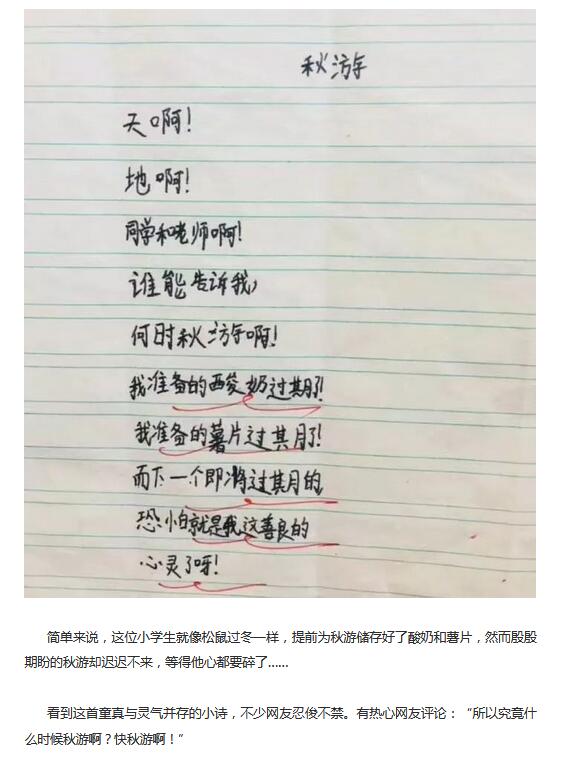 秋游
天啊！
地啊！
同学和老师啊！
谁能告诉我，
何时秋游啊！
我准备的酸奶过期了！
我准备的薯片过期了！
而下一个即将过期的
恐怕就是我这善良的
心灵了呀！
简单来说，这位小学生就像松鼠过冬一样，提前为秋游储存好了酸奶和薯片，然而殷殷
期盼的秋游却迟迟不来，等得他心都要碎了……
看到这首童真与灵气并存的小诗，不少网友忍俊不禁。有热心网友评论：“所以究竟什
么时候秋游啊？快秋游啊！”